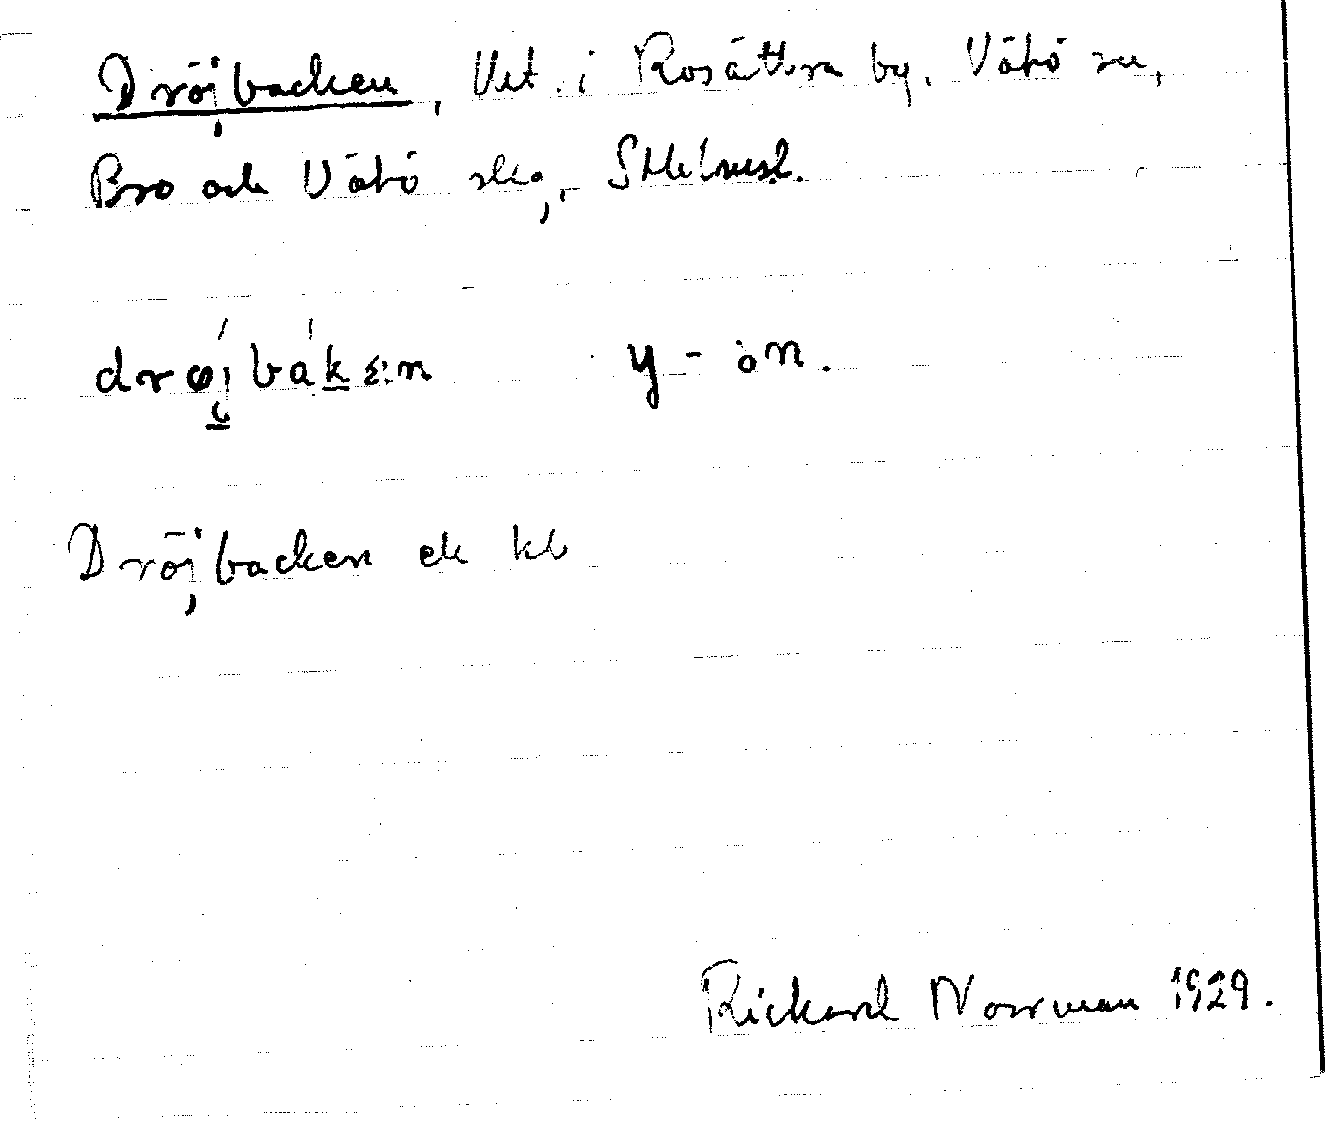 Dröjbacken, Utt. i Rosättra by. Vätö sn,
Bro och Vätö slg, Sthlms l.
drøjbakɛn y - ån.
Dröjbacken ek kb
Rickard Norrman 1929.